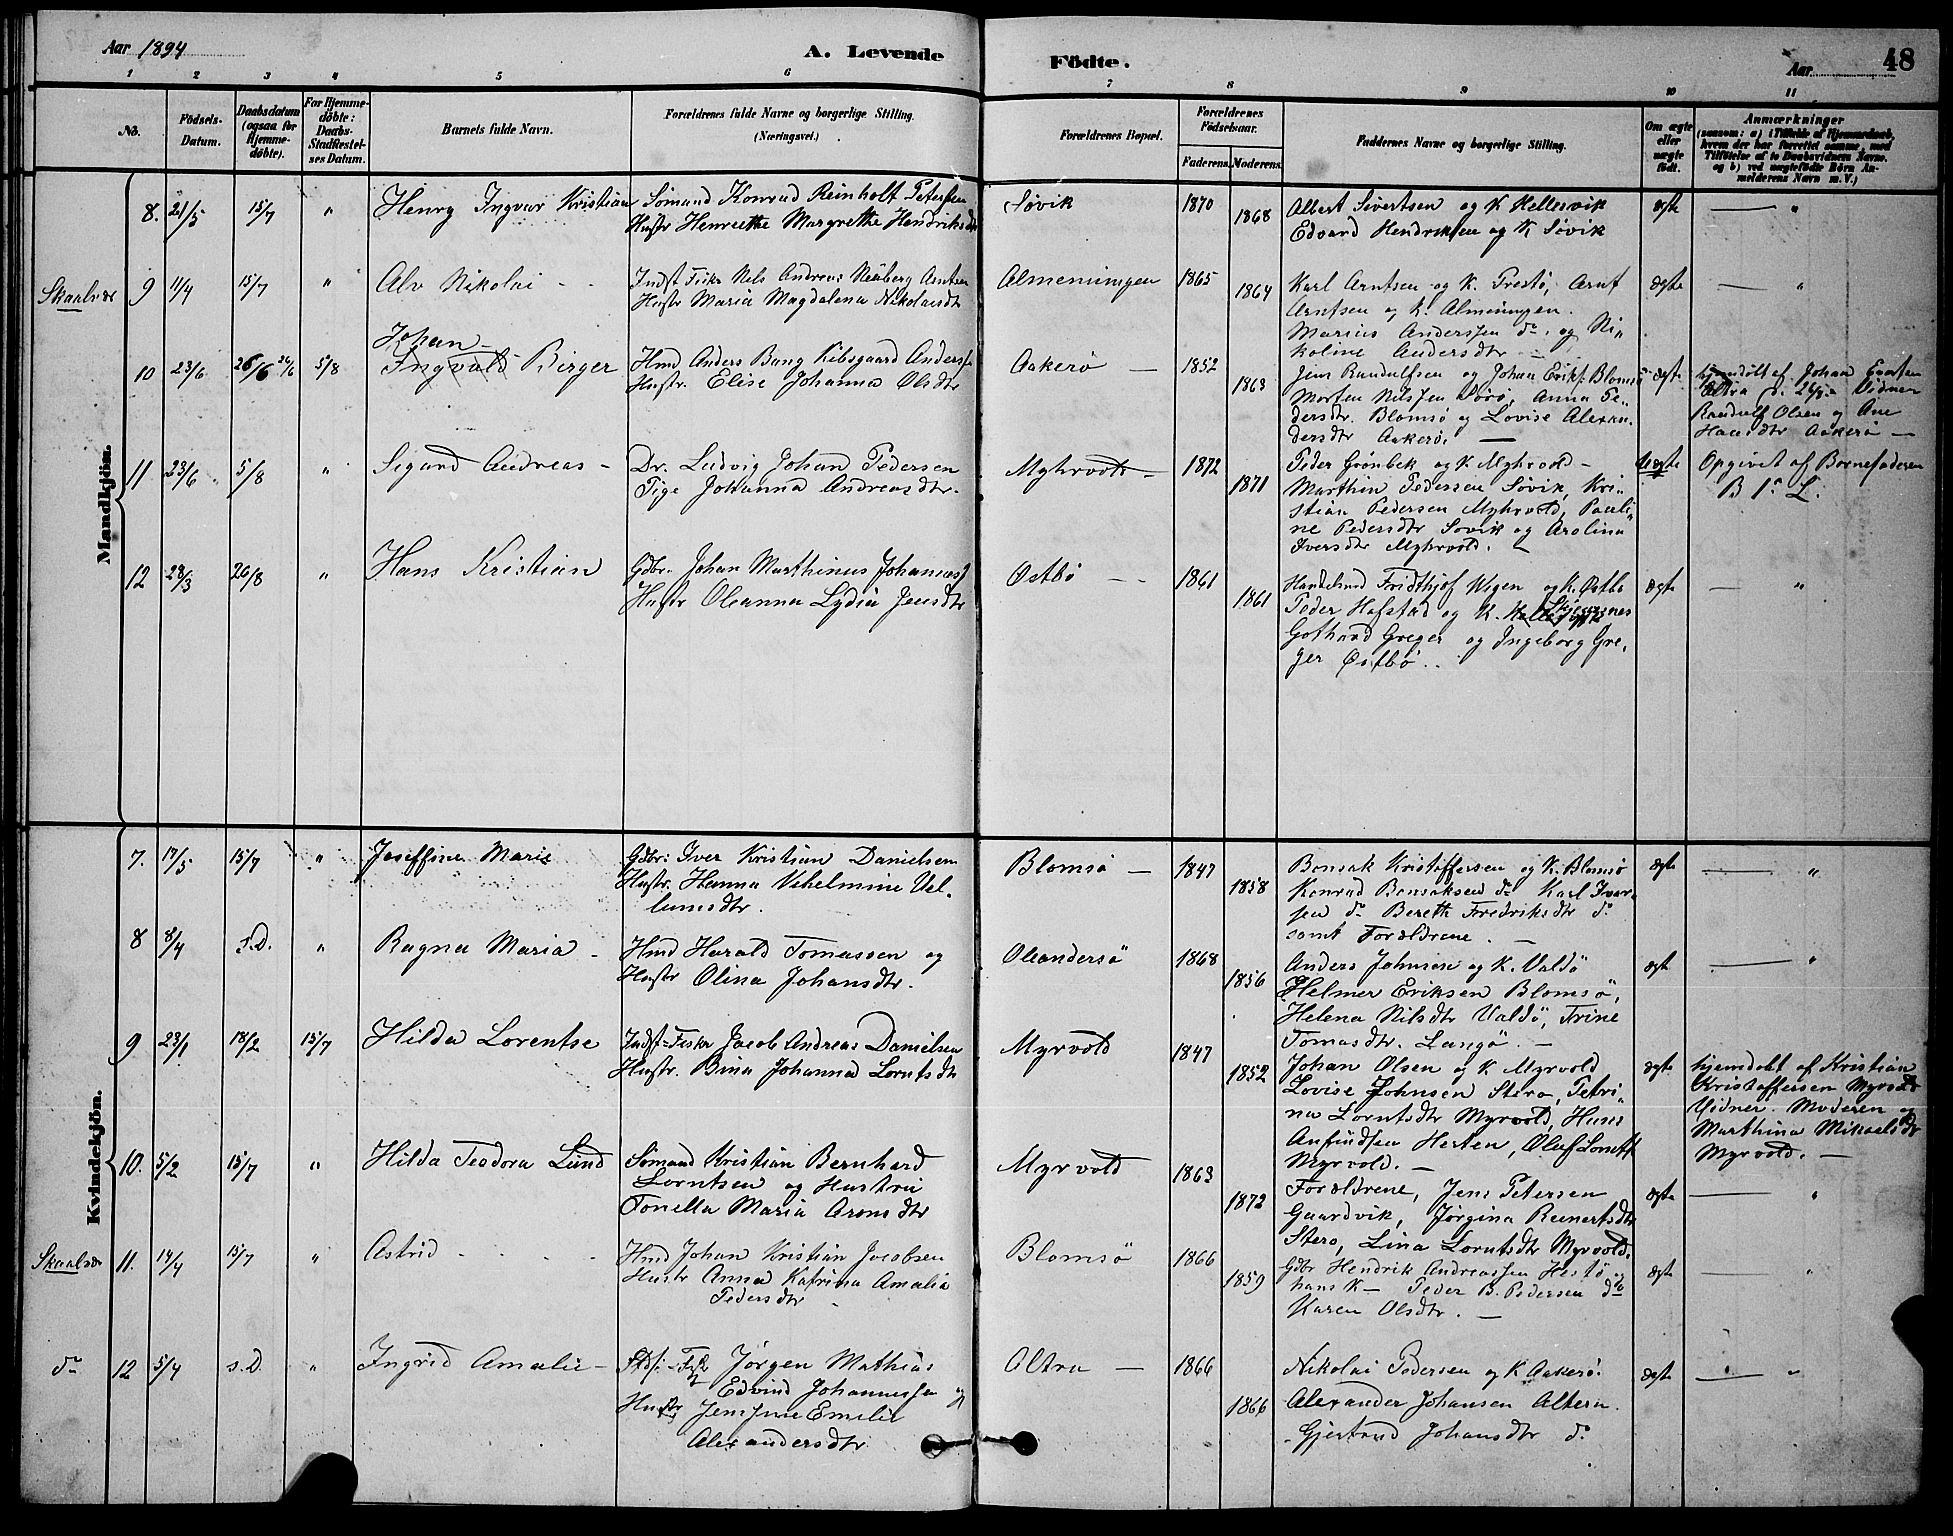 Aar 1894
A. Levende
Födte.
Aar
48
1 2 3 4 5 6 7 8 9 10 11
No.
Födsels-Datum.
Daabsdatum (ogsaa for Hjemme-döbte).
For Hjemme-döbte: Daabs-Stadfæstel-ses Datum.
Barnets fulde Navn.
Forældrenes fulde Navne og borgerlige Stilling.
(Næringsvei.)
Forældrenes Bopæl.
Forældrenes Födselsaar.
Faderens. Moderens.
Faddernes Navne og borgerlige Stilling.
Om ægte eller uægte födt.
Anmærkninger
(saasom: a) i Tilfælde af Hjemmedaab,
hvem der har forrettet samme, med
Tilföielse af to Daabsvidners Navne.
og b) ved uægtefödte Börn An-
melderens Navn m. V.)
Mandkjön.
8. 21/5 15/7 " Henry Ingvar Kristian
Sömand Konrad Reinholt Petersen
Hustr Henriette Margrethe Hendriksdtr
Søvik 1870 1868
Albert Sivertsen og K Hellesvik
Edvard Hendriksen og K Søvik
ægte — "
Skaalvær 9 11/4 15/7 " Alv Nikolai - -
Indst Fisker Nils Andreas Arntsen
Hustr Maria Magdalena Nikolaisdtr
Almenningen 1865 1864
Karl Arntsen og K. Prestø, Arnt
Arntsen og K. Almeningen.
Marius Andersen do. og Ni-
koline Andersdtr —
ægte — "
10 23/6 26/6 26/6 5/8
Johan
Ingvald Birger
Hmd Anders Bang Kibsgaard Anders
Hustr. Elise Johanna Olsdtr
Aakerø — 1852 1863
Jens Randulfsen og Johan Eriks. Blomsö
Morten Nilssen Sørø, Anna Pe-
dersdtr. Blomsø og Lovise Alexan-
dersdtr Aakerø. —
ægte
hjemdöbt af Johan
Altra d. Vidner
Randulf Olsen og Ane
Hansdtr Aakerø —
11 23/6 5/8 " Sigurd Andreas -
Dr. Ludvig Johan Pedersen
Pige Johanna Andreasdtr.
Myhrvold - 1872 1871
Peder Grönbek og K. Myhrvold -
Marthin Pedersen Søvik, Kri-
stian Pedersen Myhrvold, Pauli-
ne Pedersdtr Søvik og Arolina
Iversdtr Myhrvold. —
Uægte
Opgivet af Barnefaderen
B 1s L.
12 28/3 26/8 " Hans Kristian
Gdbr. Johan Marthinus Johanness
Hustr Oleanna Lydia Jensdtr
Ostbø - - 1861 1861
Handelsmd Fridthjof Wigen og K. Østbø
Peder Hafstad og K.
Gothard Greger og Ingeborg Gre-
ger Østbø..
ægte — "
Kvindekjön.
7. 17/5 15/7 " Joseffine Marie
Gdbr: Iver Kristian Danielsen
Hustr. Hanna Vilhelmine Vel-
lumsdtr.
Blomsø — 1847 1858
Bonsak Kristoffersen og K. Blomsø
Konrad Bonsaksen do Karl Ivar-
sen do Bereth Fredriksdtr do
samt Forældrene. —
ægte — "
8 8/4 s.D. " Ragna Maria -
Hmd Harald Tomassen og
Hustr Olina Johansdtr.
Oleandersö 1868 1856
Anders Johnsen og K. Valdö
Helmer Eriksen Blomsö,
Helena Nilsdtr Valdö, Trine
Tomasdtr. Langö. —
ægte — "
9 23/1 18/2 15/7 Hilda Lorentse
Indst-Fisker Jacob Andreas Danielsen
Hustr. Bina Johanna Lorntsdtr
Myrvold 1847 1852
Johan Olsen og K Myrvold
Lovise Johnsen Stero, Petri-
na Lorntsdtr Myrvold, Hans
Anfindsen Hesten, Oluf Lornts
Myrvold. —
ægte
hjemdøbt af Kristian
Kristoffersen Myrvold
Vidner. Moderen og
Marthina Mikaelsdtr
Myrvold. —
10. 5/2 15/7 " Hilda Teodora Lund
Sömand Kristian Bernhard
Lorntsen og Hustru
Tonella Maria Aronsdtr
Myrvold 1863 1872
Forældrene, Jens Petersen
Gaardvik, Jørgina Reinertsdtr
Stero, Lina Lorntsdtr Myrvold.
ægte — "
Skaalvær 11. 14/4 15/7 " Astrid - - - -
Hmd Johan Kristian Jacobsen
Hustr Anna Katrina Amalia
Pedersdtr -
Blomsö 1866 1859
Gdbr Hendrik Andreassen Hestö og
hans K — Peder B. Pedersen do
Karen Olsdtr. —
ægte — "
do 12 5/4 s.D. " Ingrid Amalie -
Fisk Jørgen Mathias
Edvind Johannessen og
Hustr Jensine Emelie
Alexandersdtr
Altra — 1866 1866
Nikolai Pedersen og K Aakerø.
Alexander Johansen Altern.
Gjertrud Johansdtr do
ægte — "